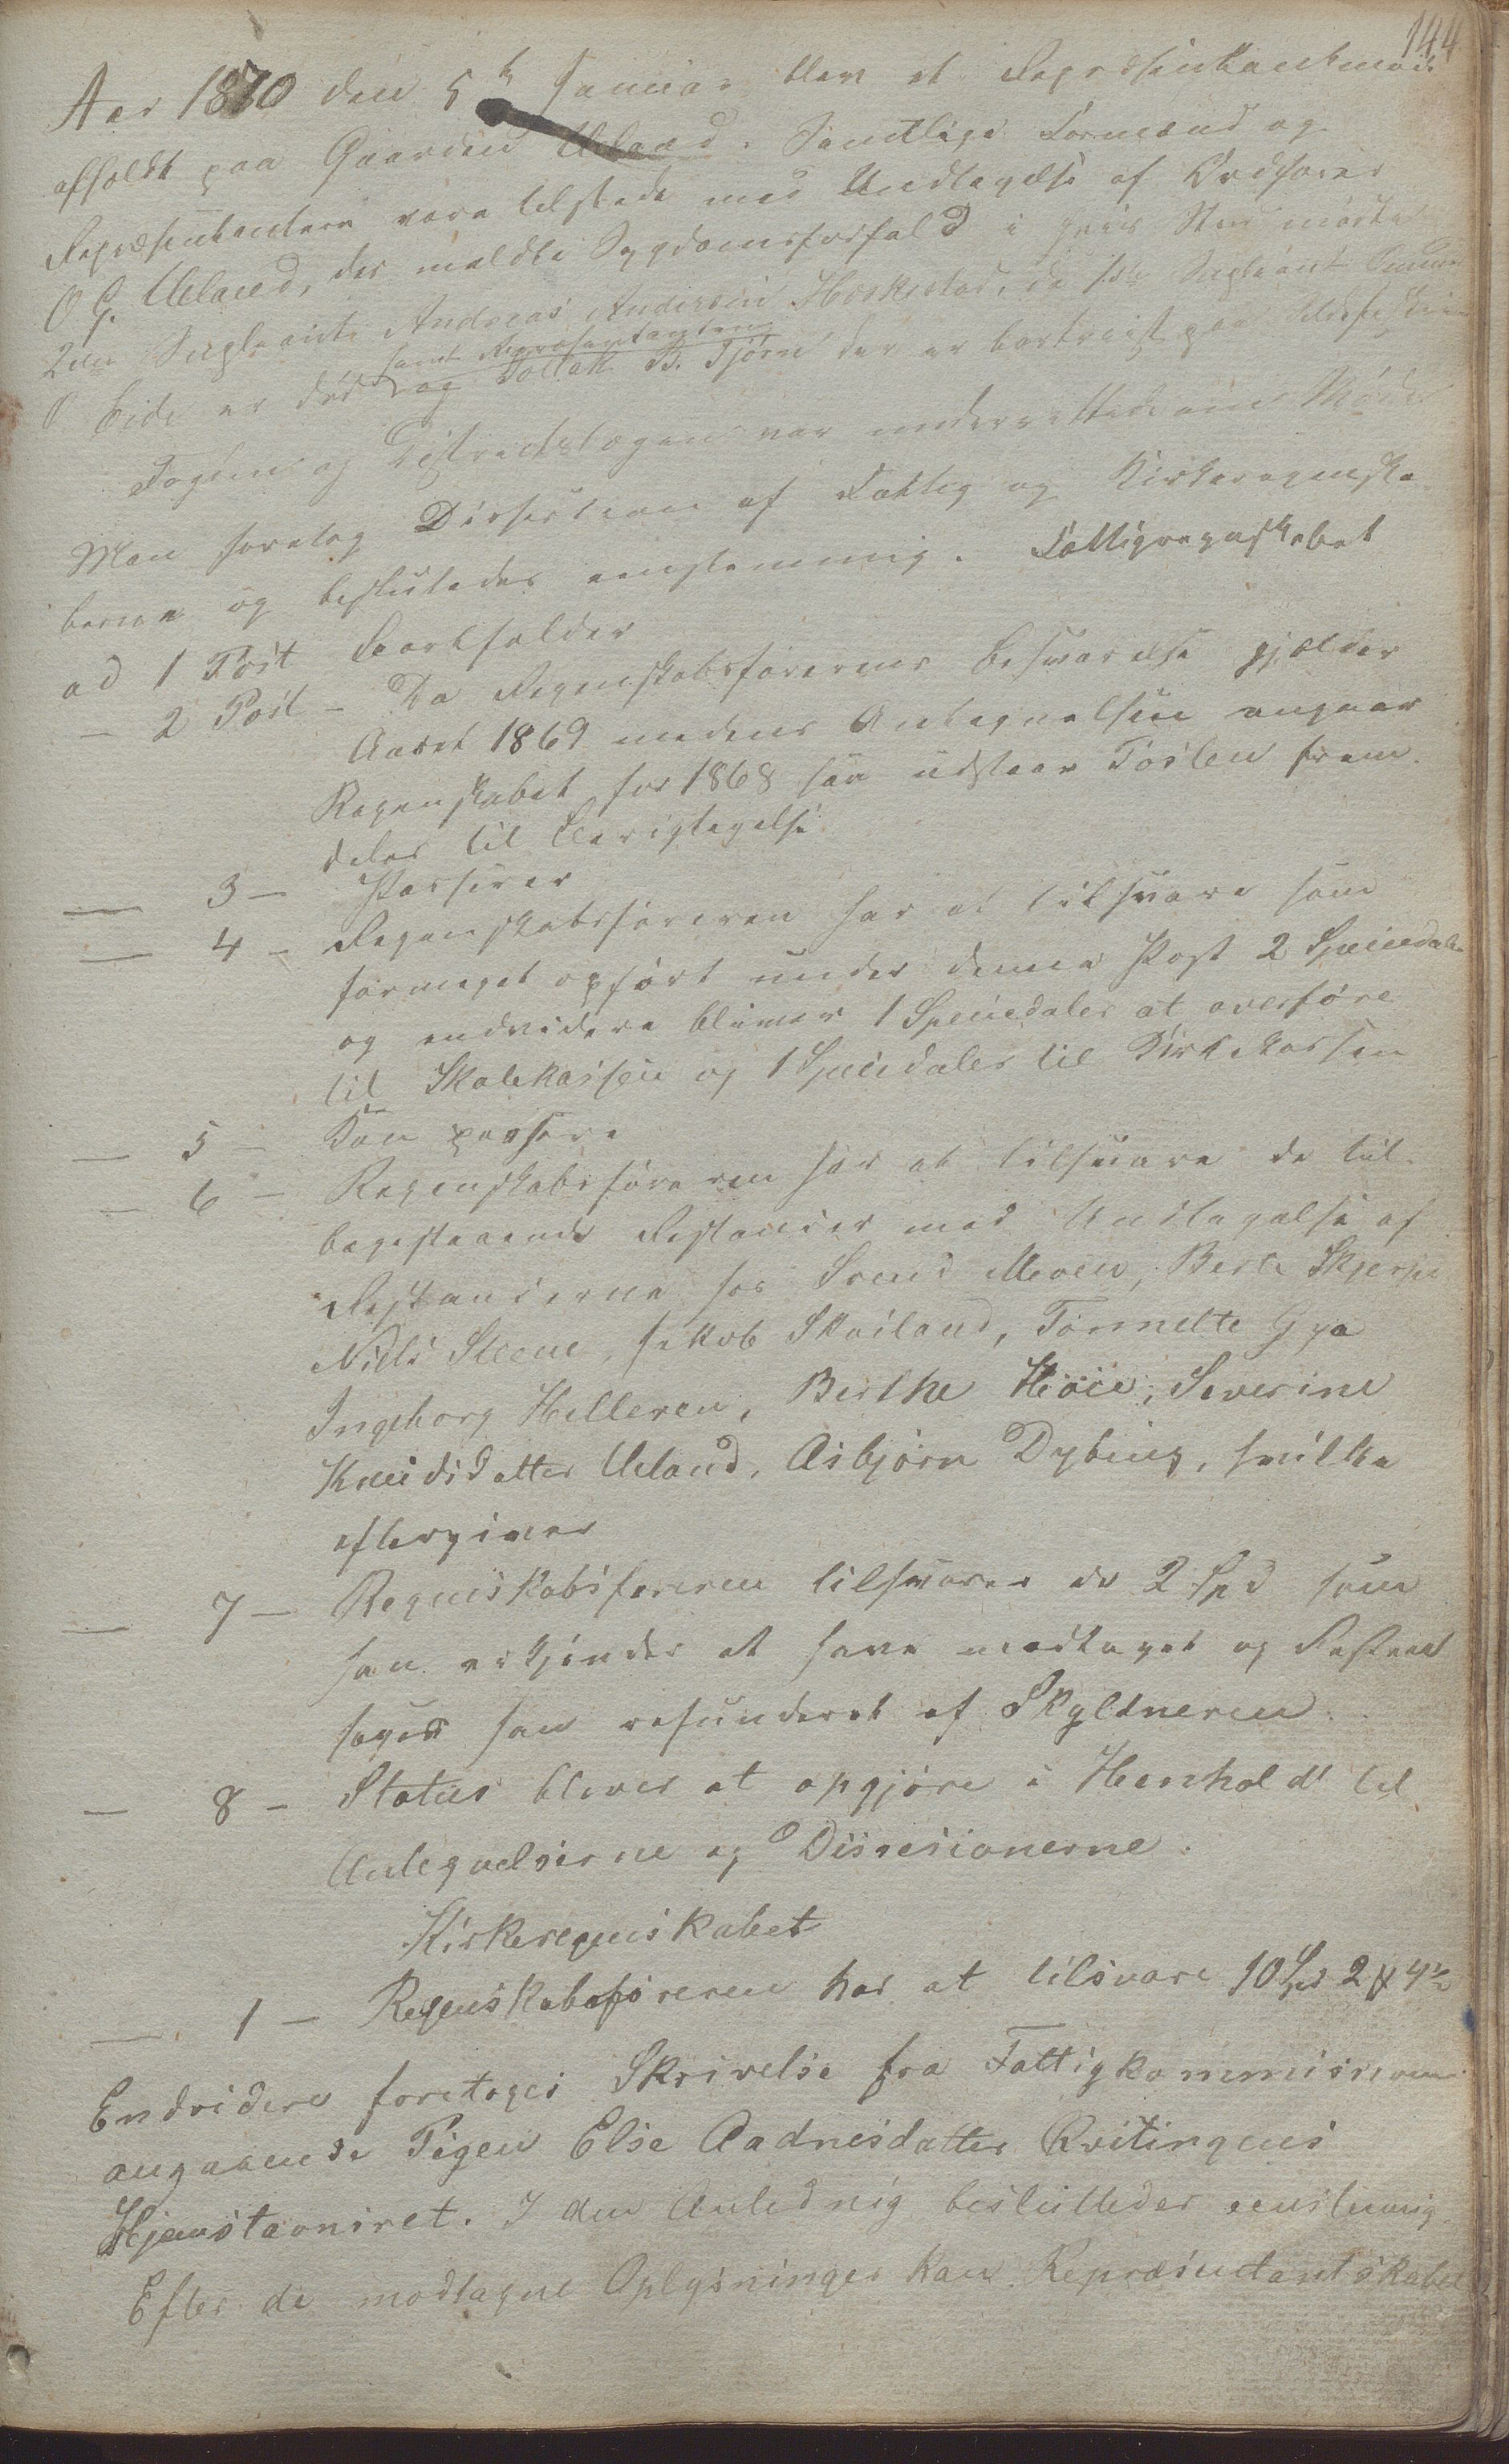 144
Aar 1870 den 5te Januar blev et Repræsentantmøde
afholdt paa Gaarden Ueland. Samtlige Formænd og
Repræsentantere vare tilstede med Undtagelse af Ordfører
O G. Ueland, der meldte Sygdomsforfald i hvis Sted mødte
2den Supleant Andreas Andersen Hæskestad, da 1ste Supleant
O Eide er død samt Repræsentanten og Tollak B. Tjørn der er bortreist paa
Fogden og Distrectslægen var underrettede om Mødet
Man foretog Dissision af Fattig og Kirkeregnska-
berne og besluttedes eenstemmig. Fattigregnskabet
ad 1 Post Bortfalder
— 2 Post - Da Regnskabsførerens Besvarelse gjelder
Aaret 1869 medens Antegnelsen angaar
Regnskabet for 1868 saa udstaar Posten frem-
deles til Berigtigelse
— 3 — Passerer
— 4 - Regnskabsføreren har at tilsvare som
formeget opført under denne Post 2 Speciedaler
og endvidere bliver 1 Speciedaler at overføre
til Skolekassen og 1 Speciedaler til Kirkekassen
— 5 — Kan passere
— 6 — Regnskabsføreren har at tilsvare de til-
bagestaaende Restancer med Undtagelse af
Restancerne for Svend Moen, Berte Skjerpe
Niels Steene, Jakob Skailand, Tønnette Gya
Ingeborg Helleren, Berthe Høie, Severine
Knudsdatter Ueland, Asbjørn Dybing, hvilke
eftergives
— 7 — Regnskabsføreren tilsvarer de 2 Spd som
han erkjender at have modtaget og Resten
søges han refunderet af Skyldneren.
— 8 - Status bliver at opgjøre i Henhold til
Antegnelserne og Dissesionerne.
Kirkeregnskabet
— 1 — Regnskabsføreren har at tilsvare 10 Spd 2 # 4 s
Endvidere foretoges Skrivelse fra Fattigkommissionen
angaaende Pigen Else Aadnesdatter Kvitingens
Hjemstavnsret. I den Anledning besluttedes eenstemmig.
Efter de modtagne Oplysninger kan Repræsentantskabet